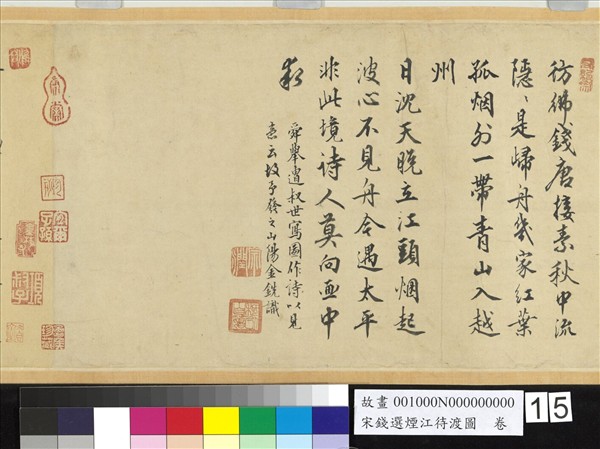 彷彿錢唐接素秋中流
隱〻是歸舟幾家紅葉
孤烟外一帶青山入越
州
日沈天晚立江頭烟起
波心不見舟今遇太平
非此境詩人莫向画中
舜舉遭叔世寫圖作詩以見
意云故予發之山陽金銑識
故畫 001000N000000000
宋錢選煙江待渡圖 卷
15